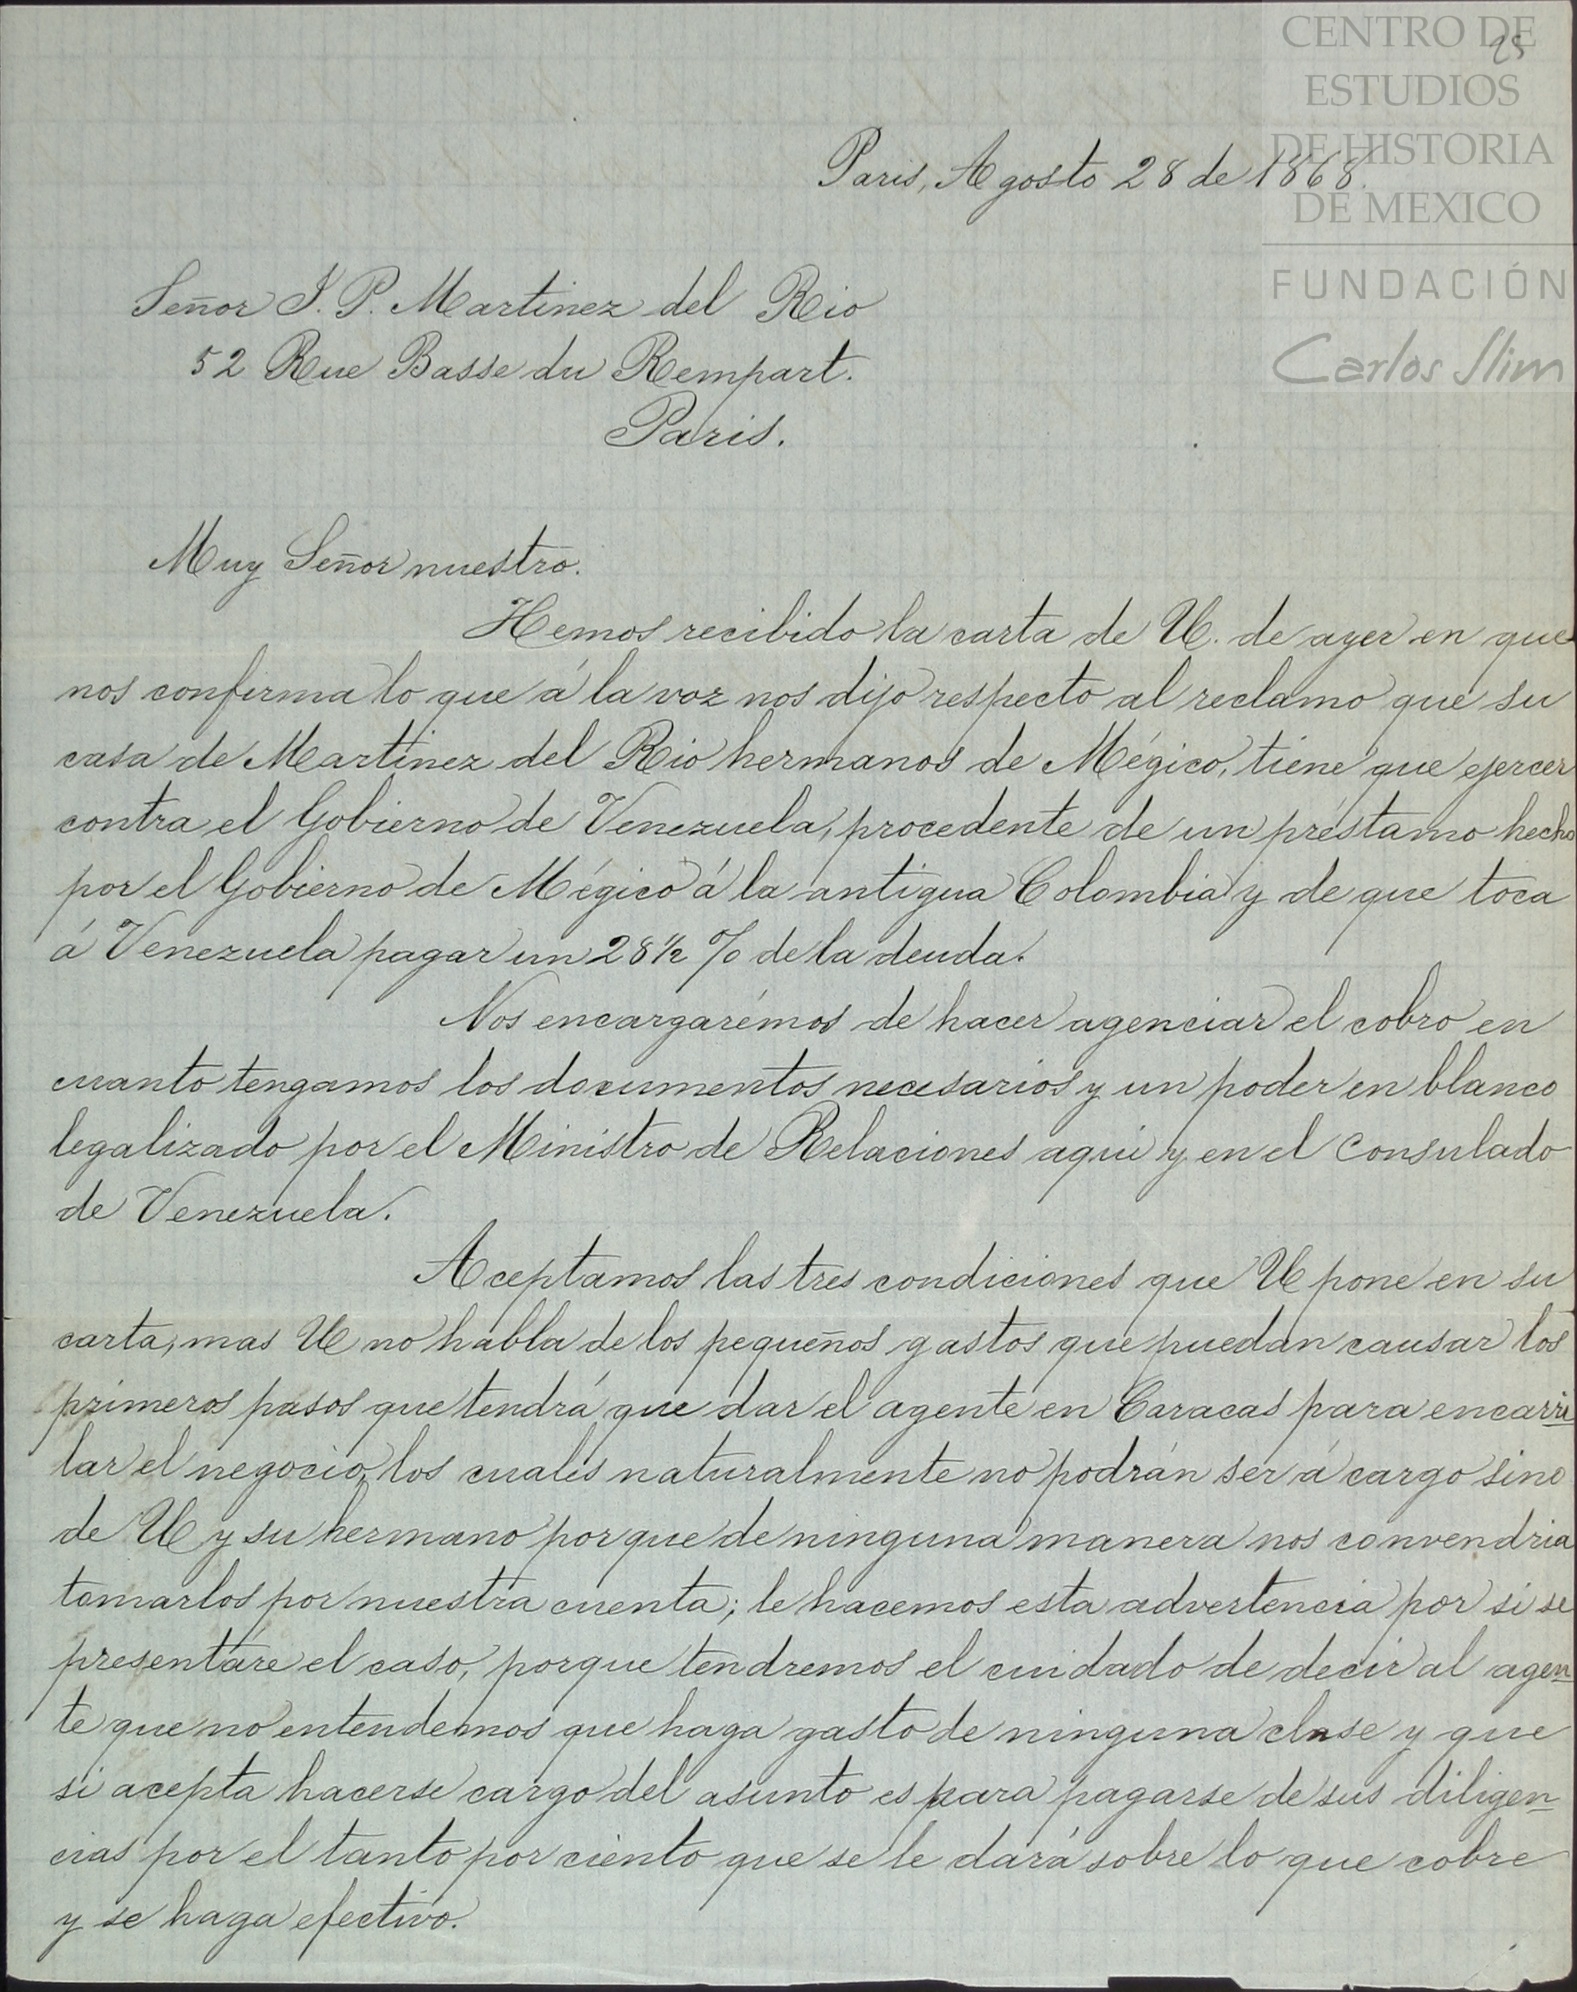 CENTRO DE
25
ESTUDIOS
DE HISTORIA
DE MEXICO
FUNDACIÓN
Carlos Slim
Paris, Agosto 28 de 1868.
Señor J. P. Martinez del Rio
52 Rue Basse du Rempart.
Paris.
Muy Señor nuestro.
Hemos recibido la carta de U. de ayer en que
nos confirma lo que á la voz nos dijo respecto al reclamo que su
casa de Martinez del Rio hermanos de Mégico, tiene que ejercer
contra el Gobierno de Venezuela, procedente de un préstamo hecho
por el Gobierno de Mégico á la antigua Colombia y de que toca
á Venezuela pagar un 28½ % de la deuda.
Nos encargarémos de hacer agenciar el cobro en
cuanto tengamos los documentos necesarios y un poder en blanco
legalizado por el Ministro de Relaciones aqui y en el Consulado
de Venezuela.
Aceptamos las tres condiciones que U pone en su
carta, mas U no habla de los pequeños gastos que puedan causar los
primeros pasos que tendrá que dar el agente en Caracas para encarri
lar el negocio, los cuales naturalmente no podrán ser á cargo sino
de U y su hermano porque de ninguna manera nos convendria
tomarlos por nuestra cuenta; le hacemos esta advertencia por si se
presentáre el caso, porque tendremos el cuidado de decir al agen
te que no entendemos que haga gasto de ninguna clase y que
si acepta hacerse cargo del asunto es para pagarse de sus diligen
cias por el tanto por ciento que se le dará sobre lo que cobre
y se haga efectivo.